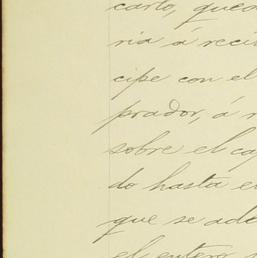 carto, que
ria á reci
cipe con el
prador, á
sobre el ca
do hasta e
que se ad
el entero